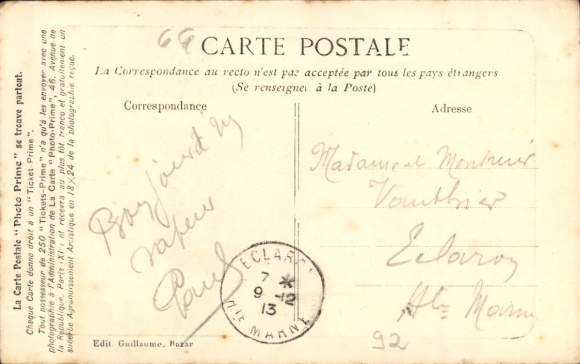 66
CARTE POSTALE
La Correspondance au recto n'est pas acceptée par tous les pays étrangers
(Se renseigner à la Poste)
Correspondance
Adresse
La Carte Postale "Photo Prime" se trouve partout.
Chaque Carte donne droit à un "Ticket-Prime".
Tout possesseur de 250 "Tickets-Prime" n'a qu'à les envoyer avec une
photographie à l'Administration de La Carte "Photo-Prime", 46, Avenue de
la République, Paris (XIe) et recevra au plus tôt franco et gratuitement un
superbe Agrandissement Artistique en 18×24 de la photographie reçue.
Bonjour
Paul
Madame et Monsieur
Vauthier
Eclaron
Hte Marne
ECLARON
7 *
9-12
13
HTE MARNE
92
Edit. Guillaume, Bazar